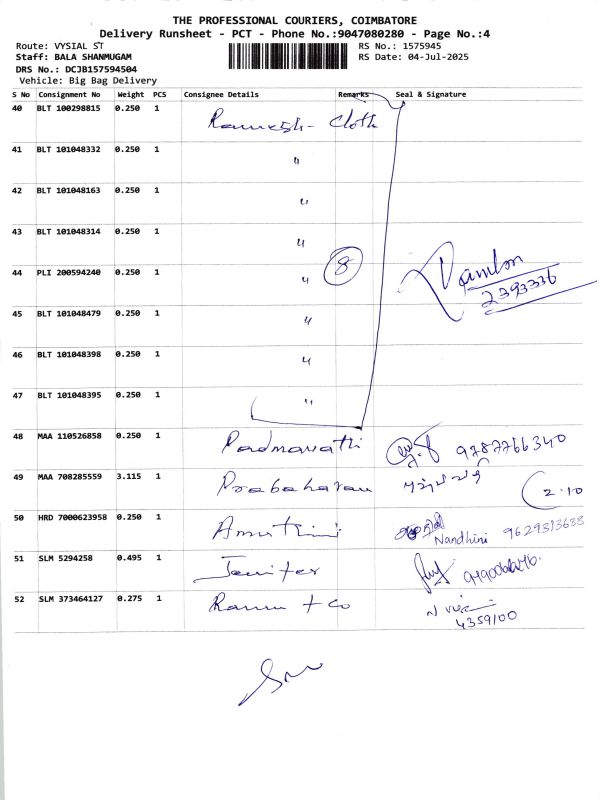 THE PROFESSIONAL COURIERS, COIMBATORE
Delivery Runsheet - PCT - Phone No.:9047080280 - Page No.:4
Route: VYSIAL ST
RS No.: 1575945
Staff: BALA SHANMUGAM
RS Date: 04-Jul-2025
DRS No.: DCJB157594504
Vehicle: Big Bag Delivery
S No Consignment No Weight PCS Consignee Details Remarks Seal & Signature
40 BLT 100298815 0.250 1 Ramesh- Cloth
41 BLT 101048332 0.250 1 "
42 BLT 101048163 0.250 1 "
43 BLT 101048314 0.250 1 "
44 PLI 200594240 0.250 1 " 8
2393336
45 BLT 101048479 0.250 1 "
46 BLT 101048398 0.250 1 "
47 BLT 101048395 0.250 1 "
48 MAA 110526858 0.250 1 Padmavathi 9787766340
49 MAA 708285559 3.115 1 Prabaharan 2.10
50 HRD 7000623958 0.250 1 Amuthini Nandhini 9629313633
51 SLM 5294258 0.495 1 Jenifer
52 SLM 373464127 0.275 1 Ramu + co
4359100